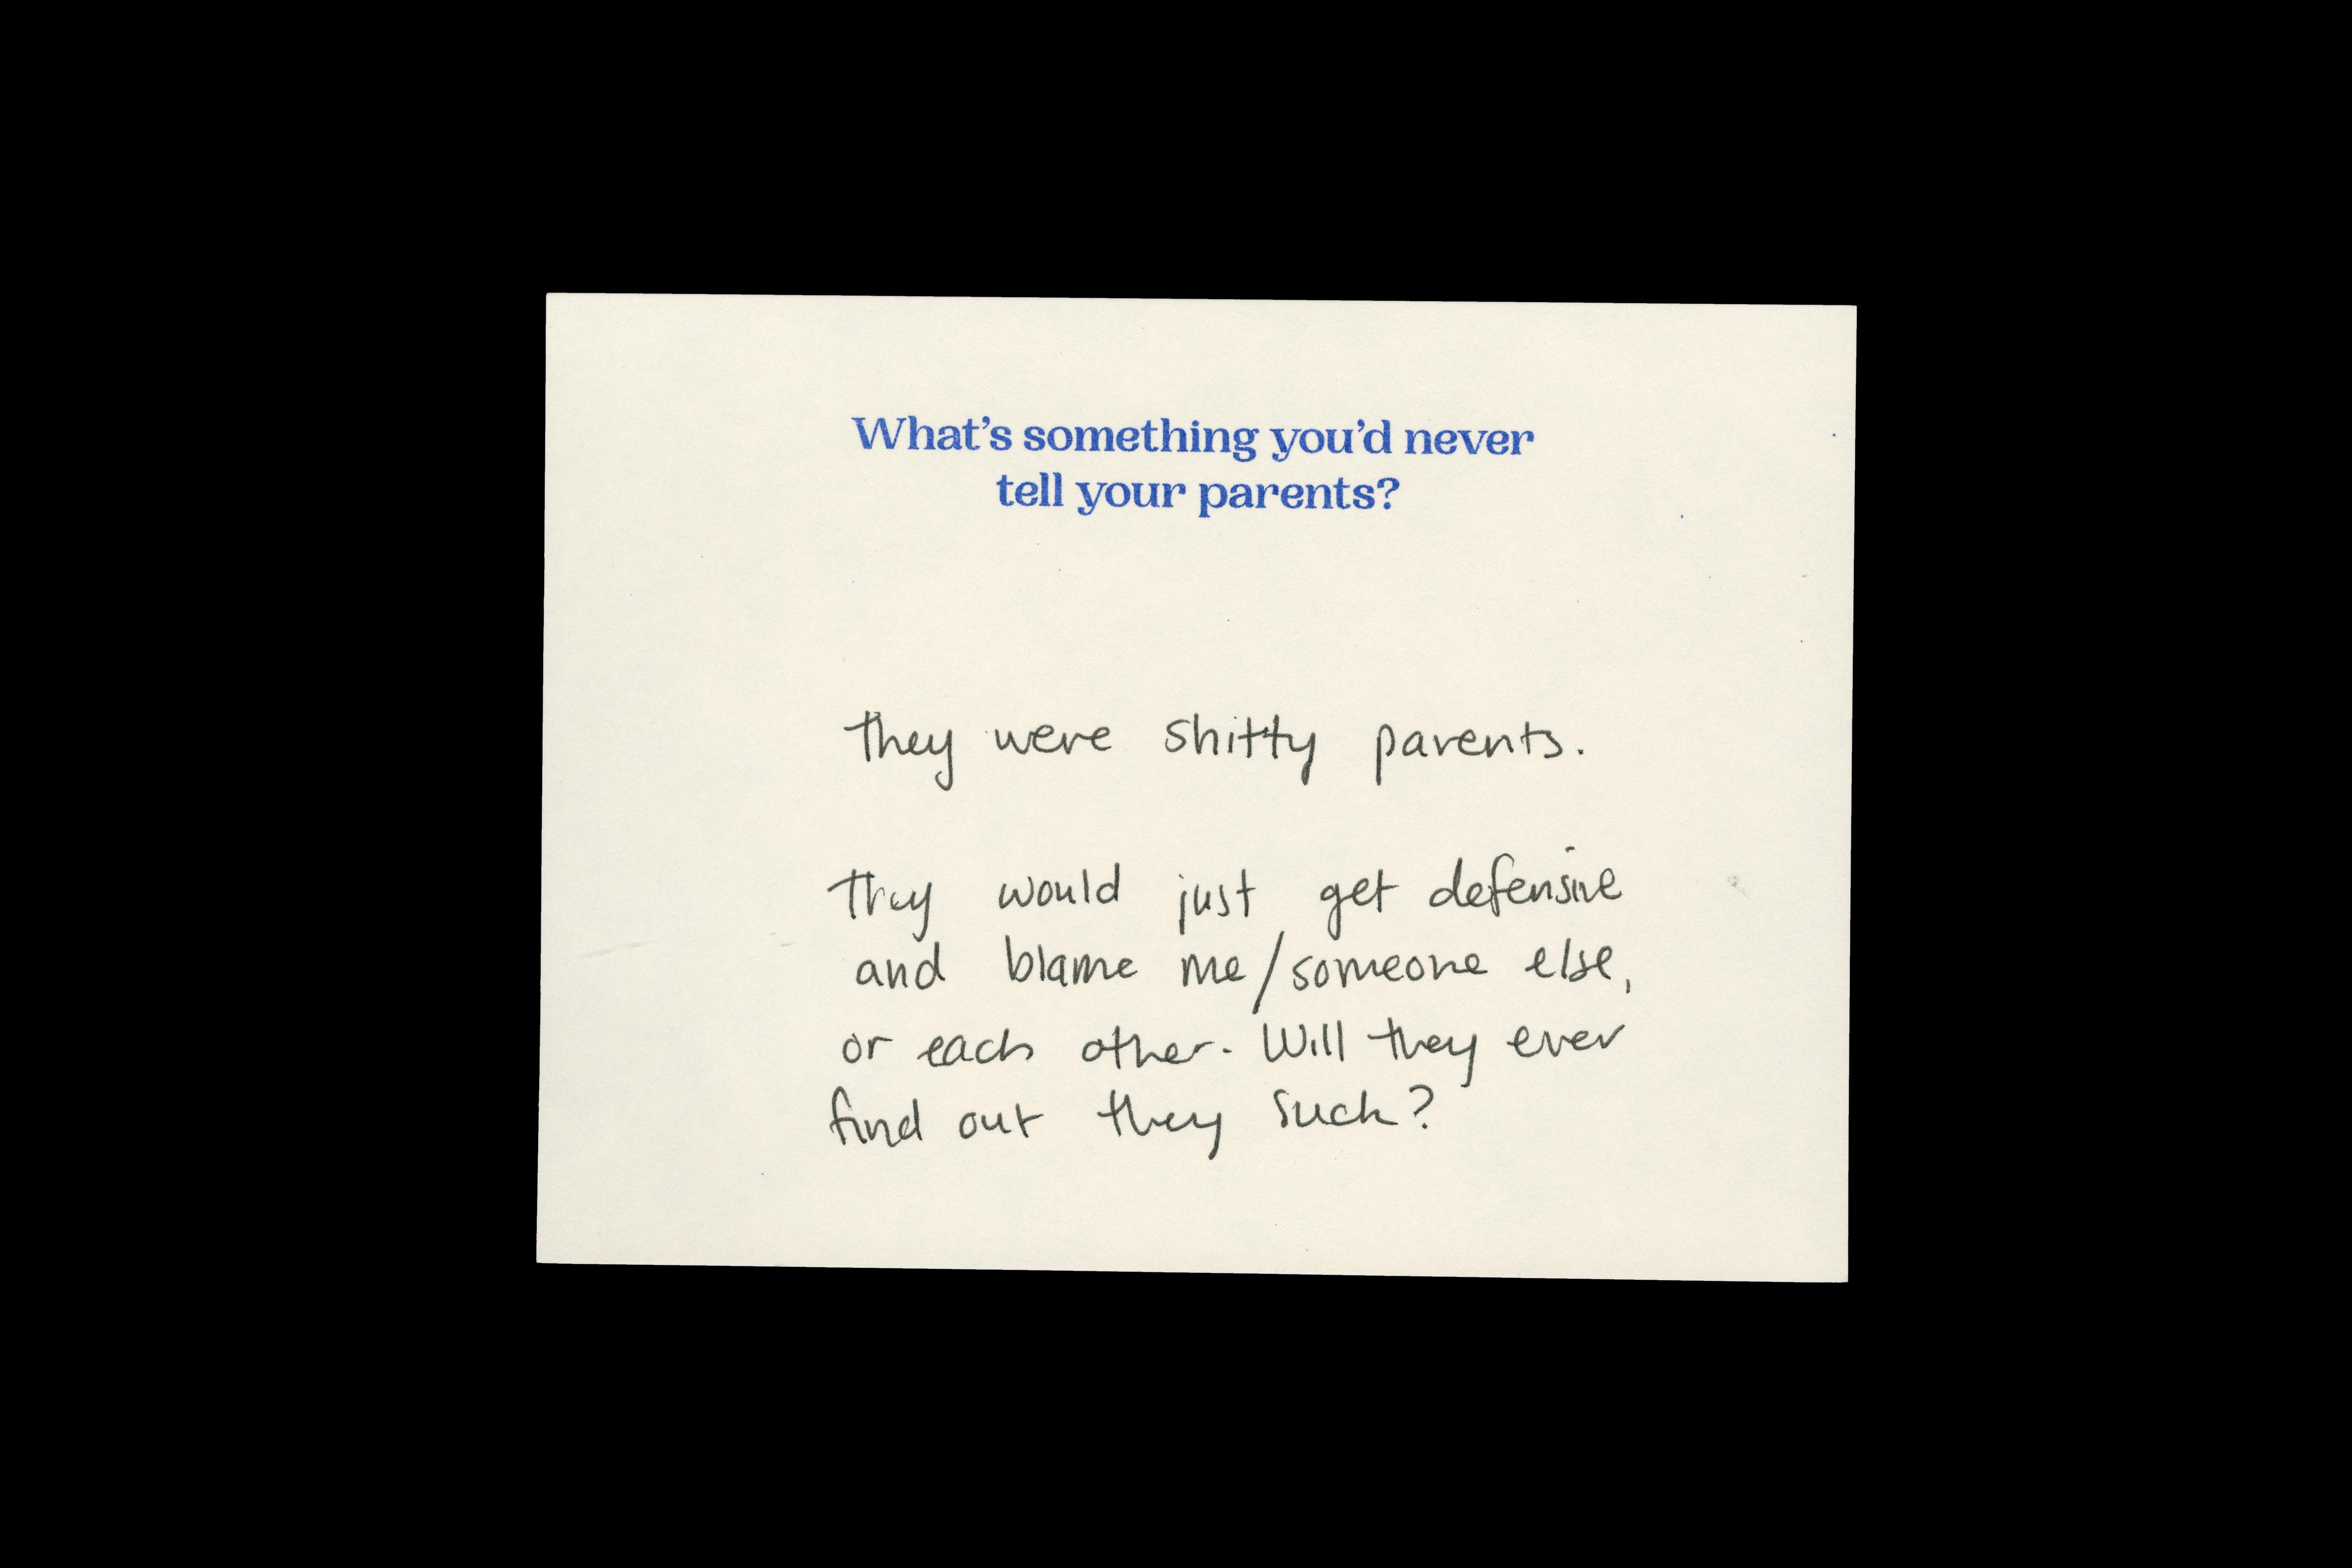 What's something you'd never
tell your parents?
They were shitty parents.
They would just get defensive
and blame me/someone else,
or each other. Will they ever
find out they suck?